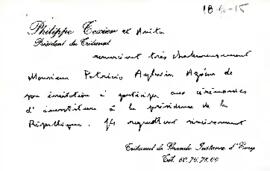 18-4-15
Philippe Texier et Anita
Président du Tribunal
remercient très chaleureusement
Monsieur Patricio Aylwin Azócar de
son invitation à participer aux cérémonies
d'investiture à la présidence de la
République. Ils regrettent vivement
Tribunal de Grande Instance d'Evry
Tél. 60.76.78.00